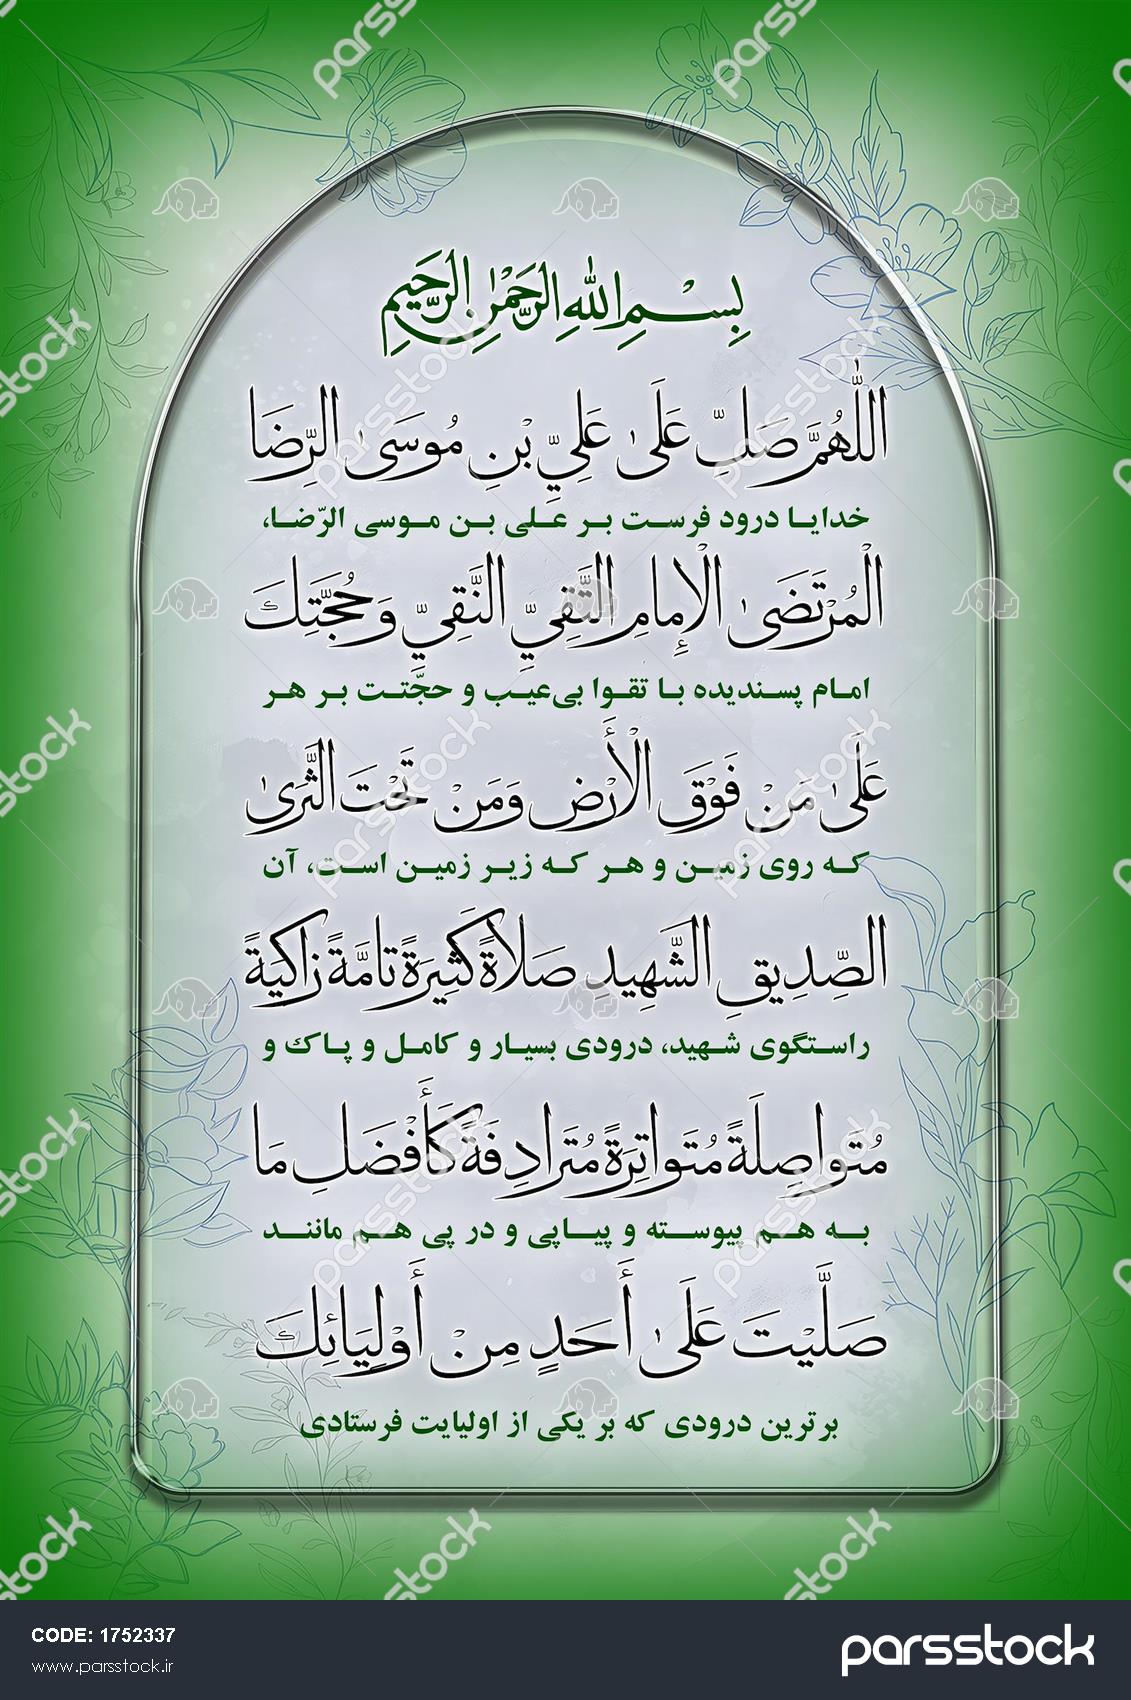 بِسْمِ اللهِ الرَّحْمٰنِ الرَّحِیمِ
اَللّٰهُمَّ صَلِّ عَلَىٰ عَلِيِّ بْنِ مُوسَىٰ الرِّضَا
خدایا درود فرست بر علی بن موسی الرّضا،
الْمُرْتَضَىٰ الْإِمامِ التَّقِيِّ النَّقِيِّ وَحُجَّتِكَ
امام پسندیده با تقوا بی‌عیب و حجّتت بر هر
عَلَىٰ مَنْ فَوْقَ الْأَرْضِ وَمَنْ تَحْتَ الثَّرىٰ
که روی زمین و هر که زیر زمین است، آن
الصِّدِيقِ الشَّهِيدِ صَلاةً كَثِيرَةً تامَّةً زاكِيَةً
راستگوی شهید، درودی بسیار و کامل و پاک و
مُتَواصِلَةً مُتَواتِرَةً مُتَرادِفَةً كَأَفْضَلِ مَا
به هم پیوسته و پیاپی و در پی هم مانند
صَلَّيْتَ عَلَىٰ أَحَدٍ مِنْ أَوْلِيَائِكَ
برترین درودی که بر یکی از اولیایت فرستادی
CODE: 1752337
www.parsstock.ir
parsstock